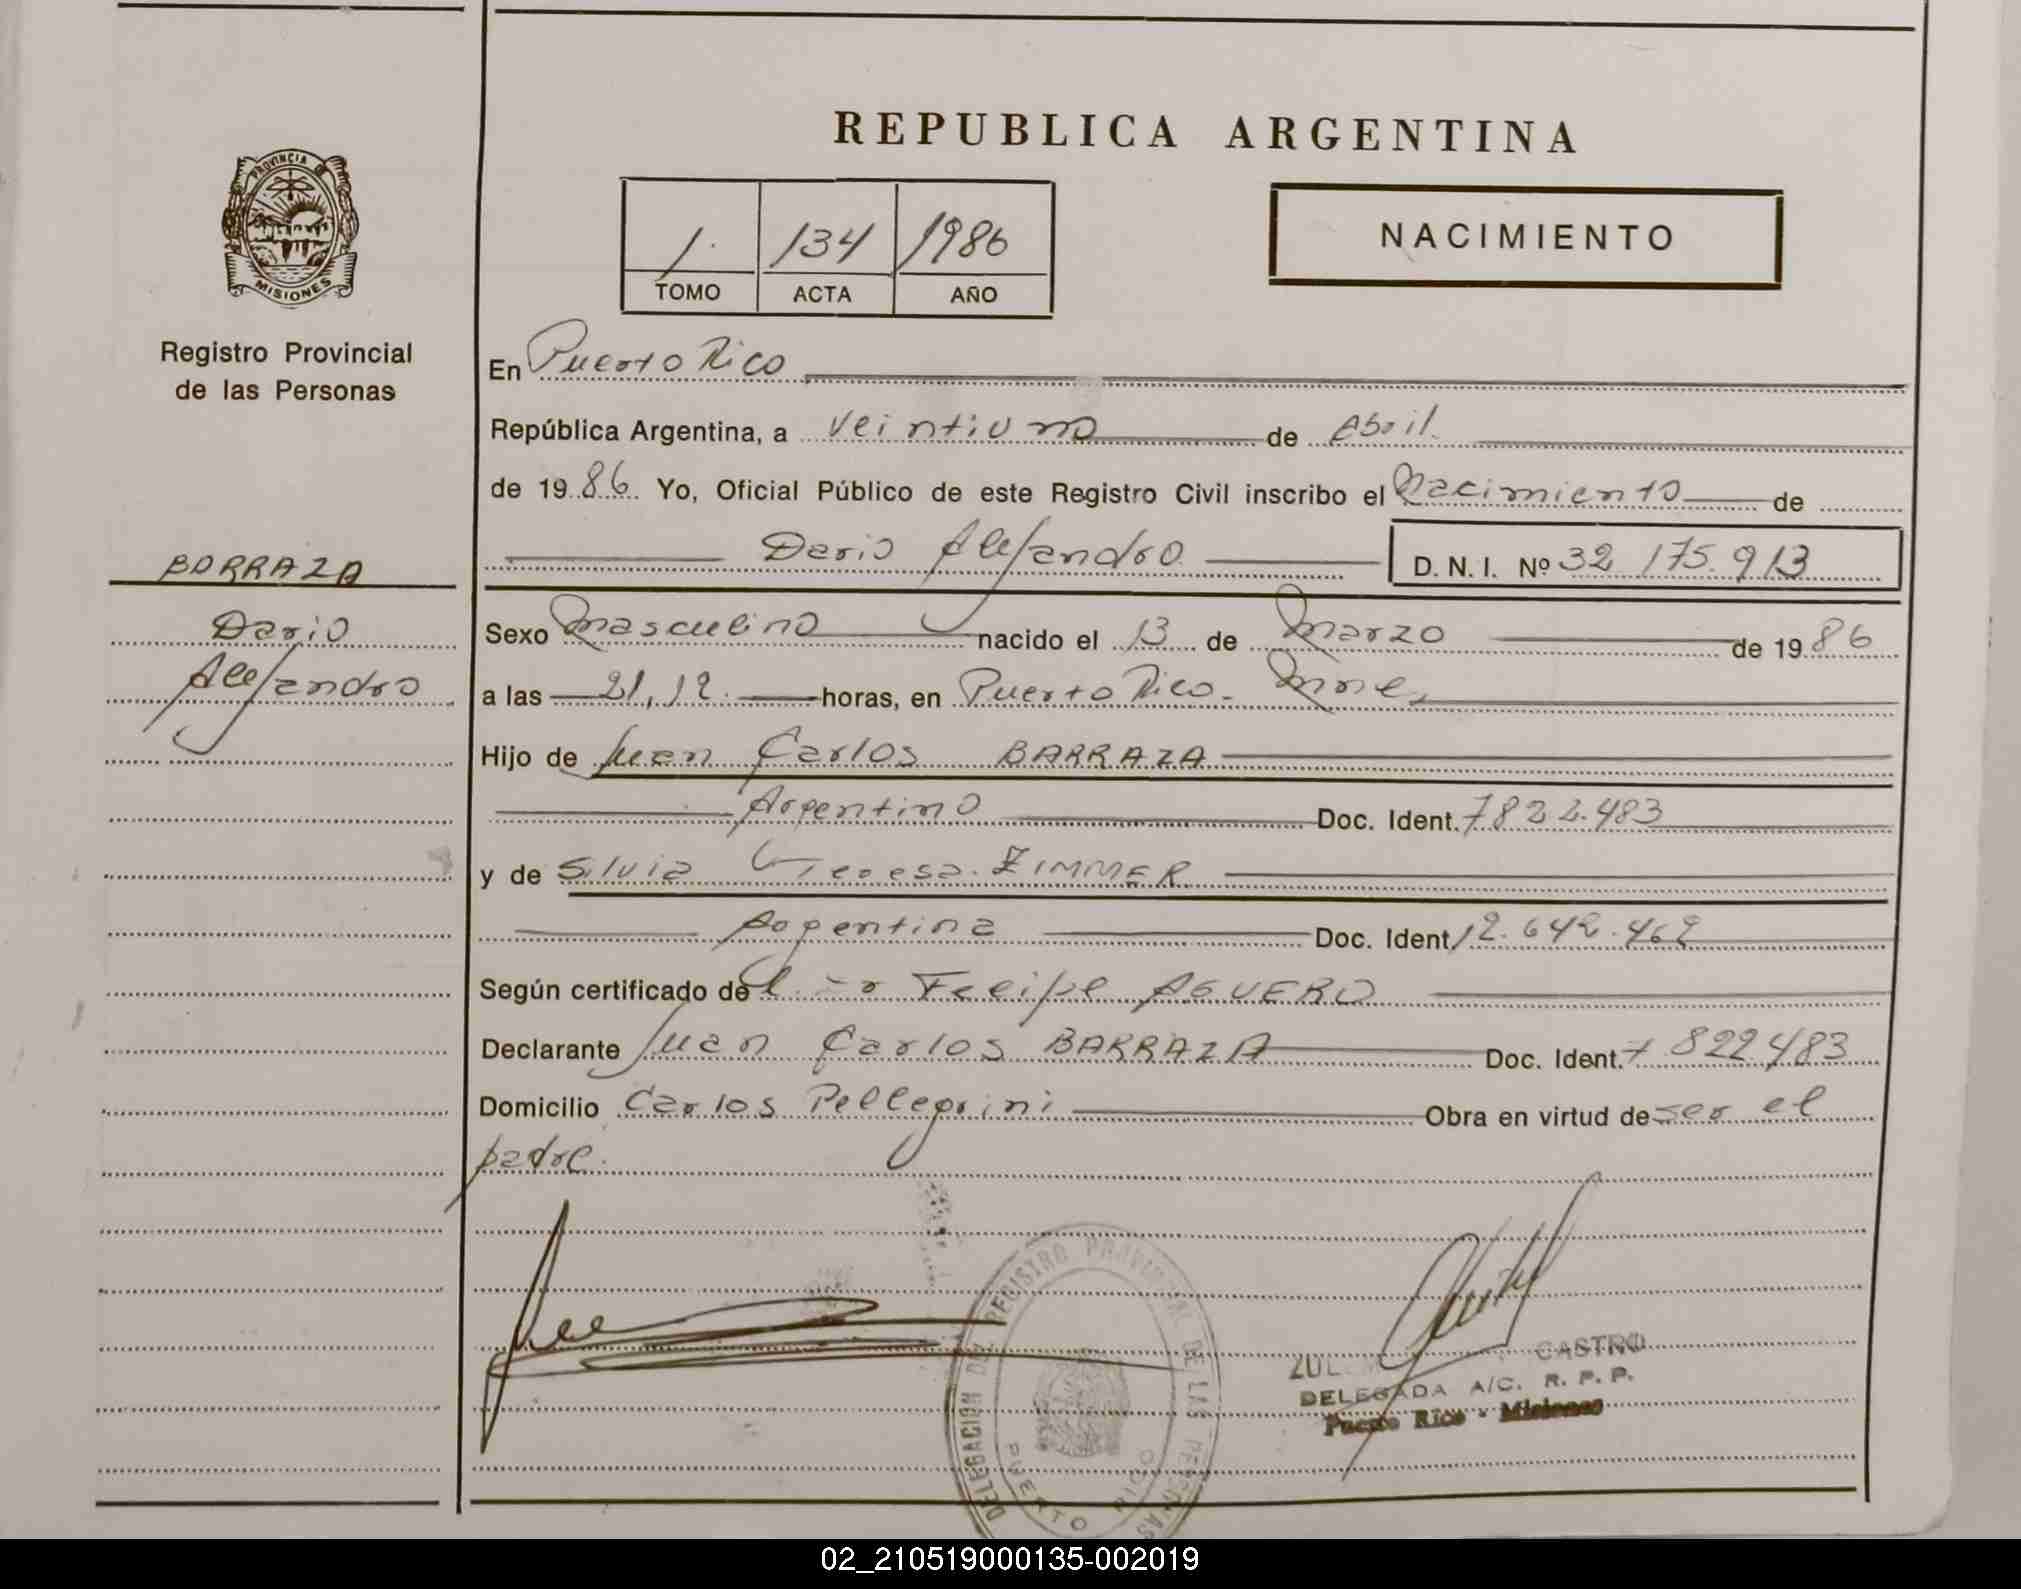 REPUBLICA ARGENTINA
PROVINCIA DE
MISIONES
Registro Provincial
de las Personas
1. 134 1986
TOMO ACTA AÑO
NACIMIENTO
En Puerto Rico
República Argentina, a veintiuno de Abril.
de 1986. Yo, Oficial Público de este Registro Civil inscribo el Nacimiento de
Dario Alejandro D. N. I. Nº 32 175.913
BORRAZA
Dario
Alejandro
Sexo Masculino nacido el 13 de Marzo de 1986
a las 21,12. horas, en Puerto Rico- Mnes,
Hijo de Juan Carlos BARRAZA
Argentino Doc. Ident. 7822.483
y de Silvia Teresa ZIMMER
Argentina Doc. Ident. 12.642.462
Según certificado del Felipe AGUERO
Declarante Juan Carlos BARRAZA Doc. Ident. 7 822483
Domicilio Carlos Pellegrini Obra en virtud de ser el
padre.
DELEGACION DEL REGISTRO PROVINCIAL DE LAS PERSONAS
PUERTO RICO
CASTRO
DELEGADA A/C. R. P. P.
Puerto Rico - Misiones
02_210519000135-002019